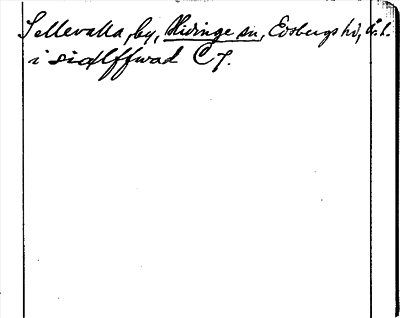 Sellevalla, by, Hidinge sn, Edsbergs hd, Ö.l.
i sidlffwad C 7.